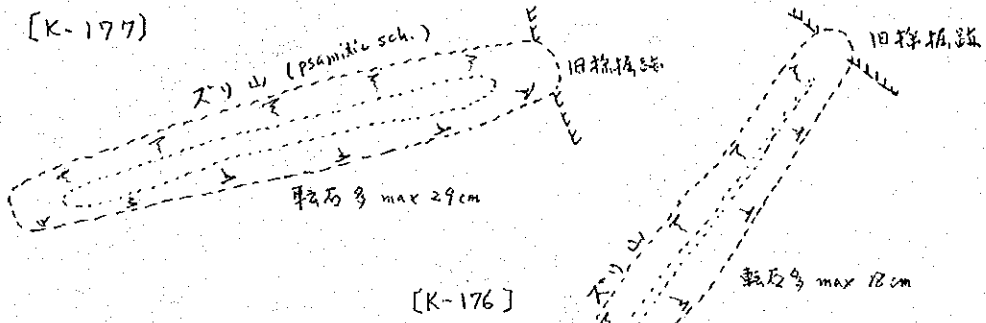 [K-177]
ズリ山 (psamitic sch.)
旧採掘跡
転石多 max 29cm
[K-176]
旧採掘跡
ズリ山
転石多 max 18cm